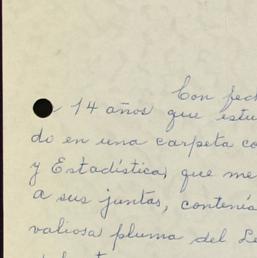 Con fech
14 años que estu
di en una carpeta co
y Estadística, que me
a sus juntas, contenía
valiosa pluma del Le